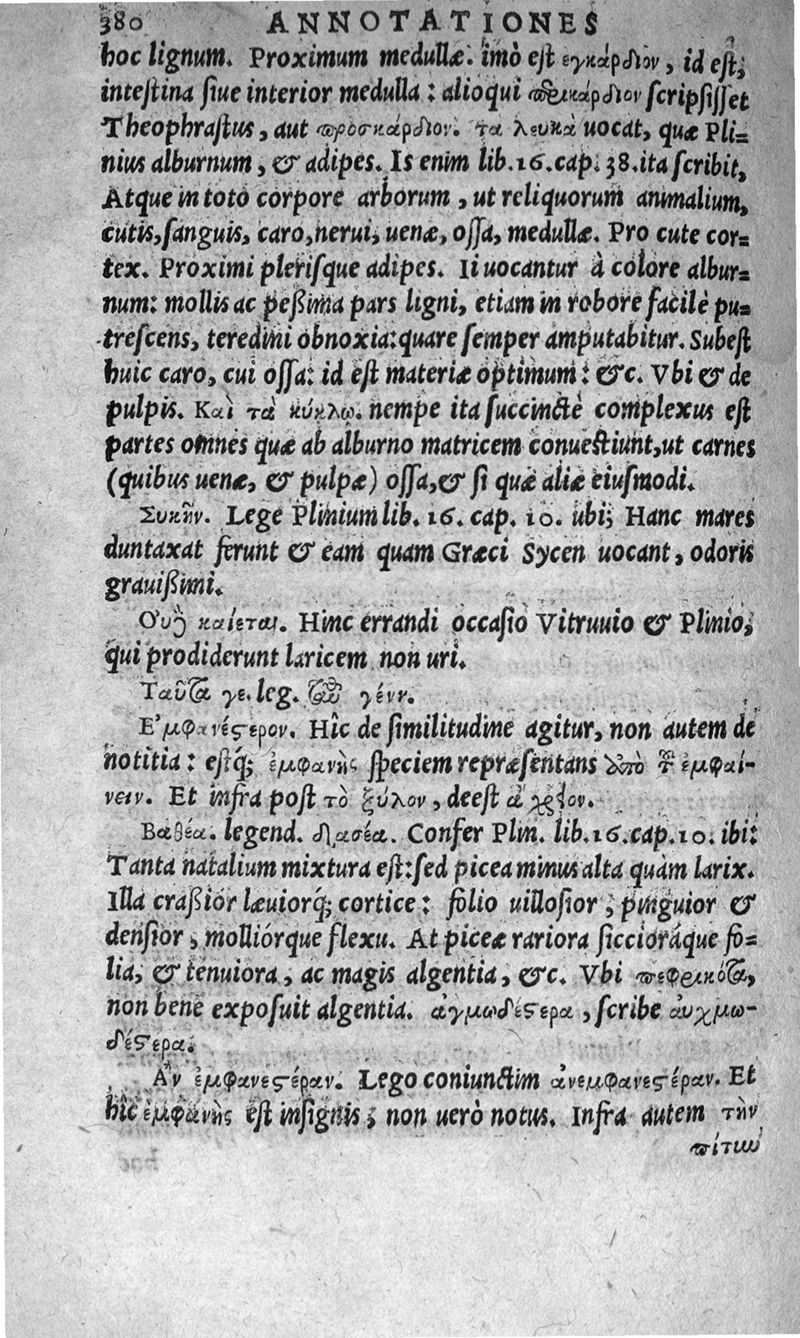 380 ANNOTATIONES
hoc lignum. Proximum medullæ. imò est εγκάρδιον, id est,
intestina siue interior medulla: alioqui περικάρδιον scripsisset
Theophrastus, aut προσκάρδιον. τα λευκὰ uocat, quæ Pli=
nius alburnum, & adipes. Is enim lib.16.cap.38.ita scribit,
Atque in toto corpore arborum, ut reliquorum animalium,
cutis, sanguis, caro, nerui, uenæ, ossa, medullæ. Pro cute cor=
tex. Proximi plerisque adipes. Ii uocantur à colore albur=
num: mollis ac peßima pars ligni, etiam in robore facilè pu=
trescens, teredini obnoxia: quare semper amputabitur. Subest
huic caro, cui ossa: id est materiæ optimum: &c. Vbi & de
pulpis. Καὶ τὰ κύκλῳ. nempe ita succinctè complexus est
partes omnes quæ ab alburno matricem conuestiunt, ut carnes
(quibus uenæ, & pulpæ) ossa, & si quæ aliæ eiusmodi.
Συκῆν. Lege Plinium lib. 16. cap. 10. ubi; Hanc mares
duntaxat ferunt & eam quam Græci Sycen uocant, odoris
grauißimi.
Ουδ καίεται. Hinc errandi occasio Vitruuio & Plinio,
qui prodiderunt laricem non uri.
Ταῦτα γε. leg. γένν.
Ε'μφανέστερον. Hîc de similitudine agitur, non autem de
notitia: estq́; ἐμφανὴς speciem repræsentans ἀπὸ τ ἐμφαί-
νειν. Et infra post τὸ ξύλον, deest ἀχρεῖον.
Βαθέα. legend. δασέα. Confer Plin. lib.16.cap.10. ibi:
Tanta natalium mixtura est: sed picea minus alta quàm larix.
Illa craßior læuiorq́; cortice: folio uillosior, pinguior &
densior, molliórque flexu. At piceæ rariora siccioráque fo=
lia, & tenuiora, ac magis algentia, &c. Vbi πεφρικότα,
non bene exposuit algentia. αγμωδέστερα, scribe αυχμω-
δέστερα.
Αν ἐμφανεστέραν. Lego coniunctim ἀνεμφανεστέραν. Et
hîc ἐμφανὴς est insignis, non uerò notus. Infra autem τὴν
πίτυν